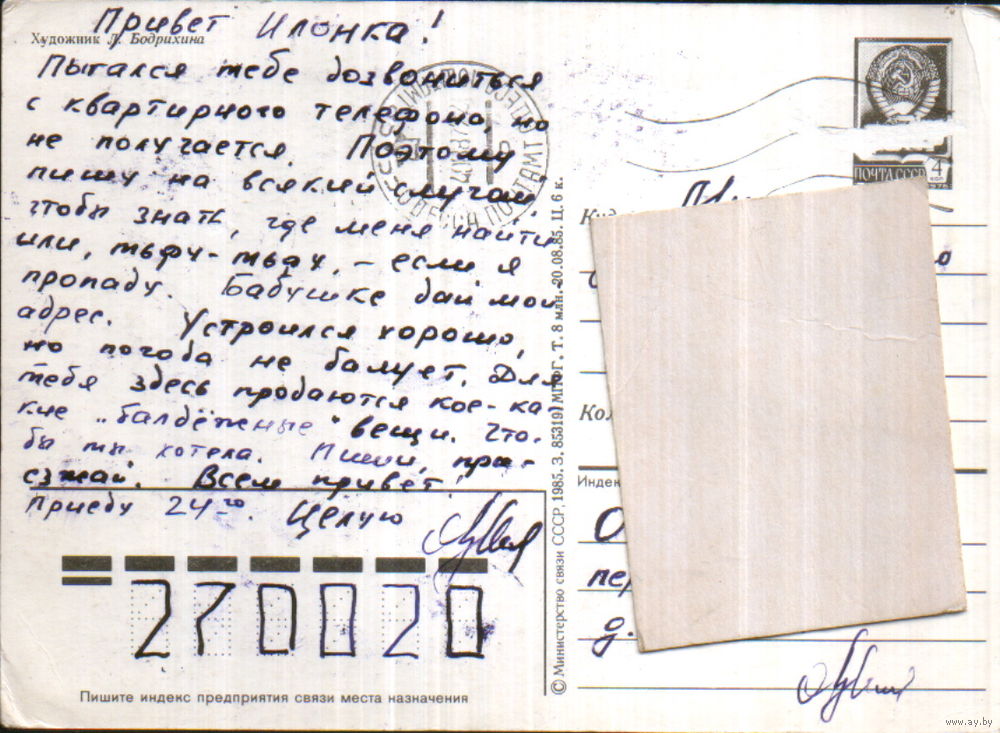 Привет Илонка!
Художник Л. Бодрихина
Пытался тебе дозвониться
с квартирного телефона, но
не получается. Поэтому
пишу на всякий случай,
чтобы знать, где меня найти
или, тьфу-тьфу, - если я
пропаду. Бабушке дай мой
адрес. Устроился хорошо,
но погода не балует. Для
тебя здесь продаются кое-ка-
кие "балдёжные" вещи. Что-
бы ты хотела. Пиши, при-
езжай. Всем привет!
Приеду 24-го. Целую
270020
Пишите индекс предприятия связи места назначения
© Министерство связи СССР, 1985. З. 85319. МПФГ. Т. 8 млн. 20.08.85. Ц. 6 к.
ПОЧТА СССР 4
КОП
1976
ОДЕССА ПОЧТАМТ
Куд
о
Ко
Индек
О
пер
д.
www.ay.by